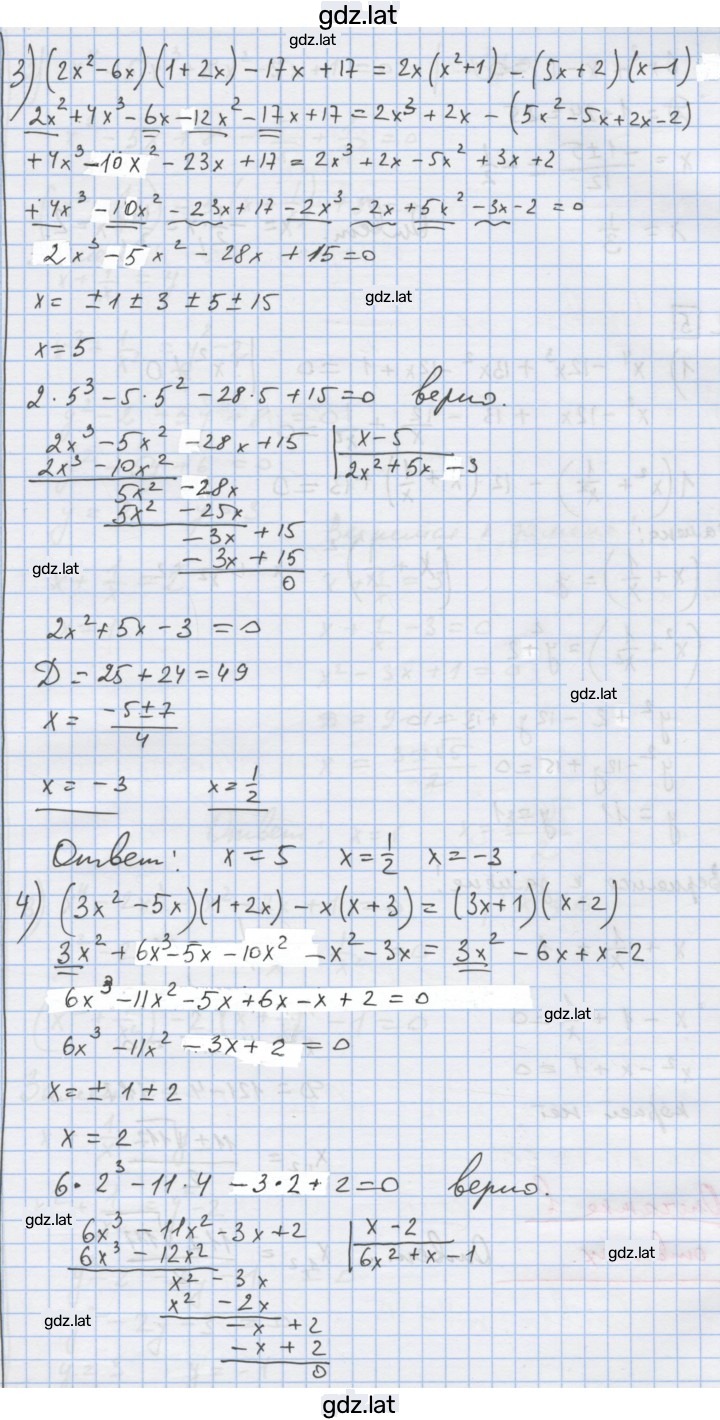 gdz.lat
3) (2x²-6x)(1+2x)-17x+17 = 2x(x²+1) - (5x+2)(x-1)
2x²+4x³-6x-12x²-17x+17=2x³+2x - (5x²-5x+2x-2)
+4x³-10x²-23x+17=2x³+2x-5x²+3x+2
+4x³-10x²-23x+17-2x³-2x+5x²-3x-2=0
2x³-5x²-28x+15=0
x= ±1±3±5±15
gdz.lat
x=5
2·5³-5·5²-28·5+15=0 верно.
2x³-5x²-28x+15 | x-5
2x³-10x² | 2x²+5x-3
5x²-28x
5x²-25x
-3x+15
-3x+15
gdz.lat
0
2x²+5x-3=0
Д=25+24=49
gdz.lat
x= (-5±7)/4
x=-3 x=1/2
Ответ: x=5 x=1/2 x=-3.
4) (3x²-5x)(1+2x)-x(x+3)=(3x+1)(x-2)
3x²+6x³-5x-10x²-x²-3x=3x²-6x+x-2
6x³-11x²-5x+6x-x+2=0
gdz.lat
6x³-11x²-3x+2=0
x=±1±2
x=2
6·2³-11·4-3·2+2=0 верно.
gdz.lat
6x³-11x²-3x+2 | x-2
6x³-12x² | 6x²+x-1
gdz.lat
x²-3x
x²-2x
gdz.lat
-x+2
-x+2
0
gdz.lat